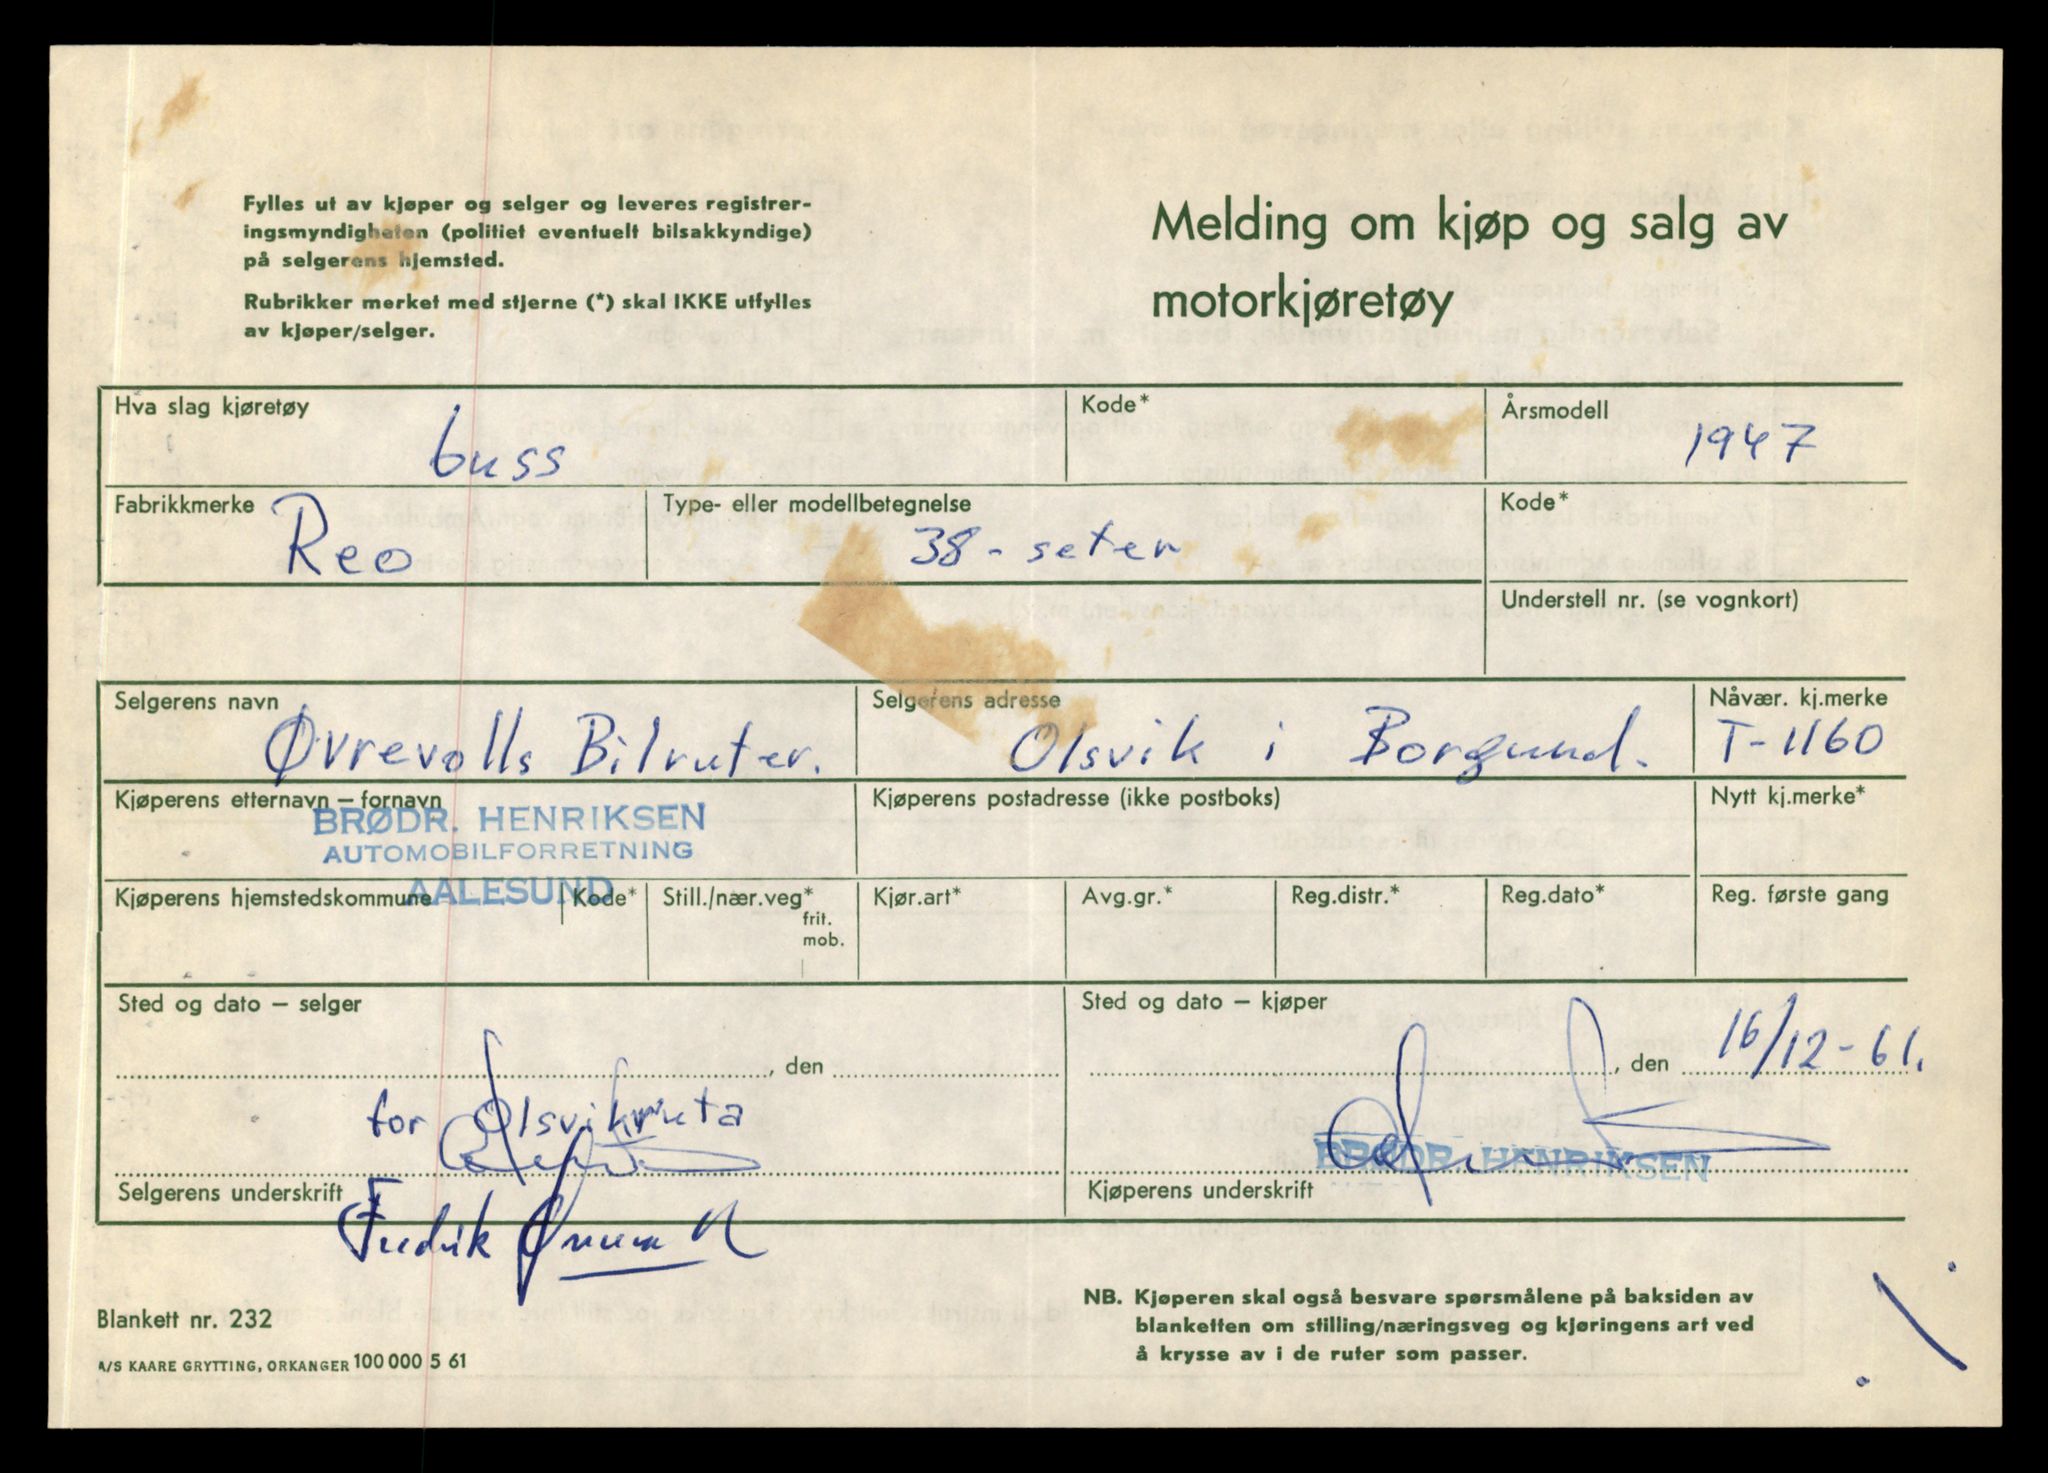 Fylles ut av kjøper og selger og leveres registrer-
ingsmyndigheten (politiet eventuelt bilsakkyndige)
på selgerens hjemsted.
Rubrikker merket med stjerne (*) skal IKKE utfylles
av kjøper/selger.
Melding om kjøp og salg av
motorkjøretøy
Hva slag kjøretøy
buss
Kode*
Årsmodell
1947
Fabrikkmerke
Reo
Type- eller modellbetegnelse
38-seter
Kode*
Understell nr. (se vognkort)
Selgerens navn
Øvrevolls Bilruter.
Selgerens adresse
Olsvik i Borgund.
Nåvær. kj.merke
T-1160
Kjøperens etternavn – fornavn
BRØDR. HENRIKSEN
AUTOMOBILFORRETNING
AALESUND
Kjøperens postadresse (ikke postboks)
Nytt kj.merke*
Kjøperens hjemstedskommune
Kode*
Still./nær.veg*
frit.
mob.
Kjør.art*
Avg.gr.*
Reg.distr.*
Reg.dato*
Reg. første gang
Sted og dato – selger
, den
for Olsvikruta
Selgerens underskrift
Fredrik
Sted og dato – kjøper
, den 16/12-61.
BRØDR. HENRIKSEN
Kjøperens underskrift
Blankett nr. 232
A/S KAARE GRYTTING, ORKANGER 100 000 5 61
NB. Kjøperen skal også besvare spørsmålene på baksiden av
blanketten om stilling/næringsveg og kjøringens art ved
å krysse av i de ruter som passer.